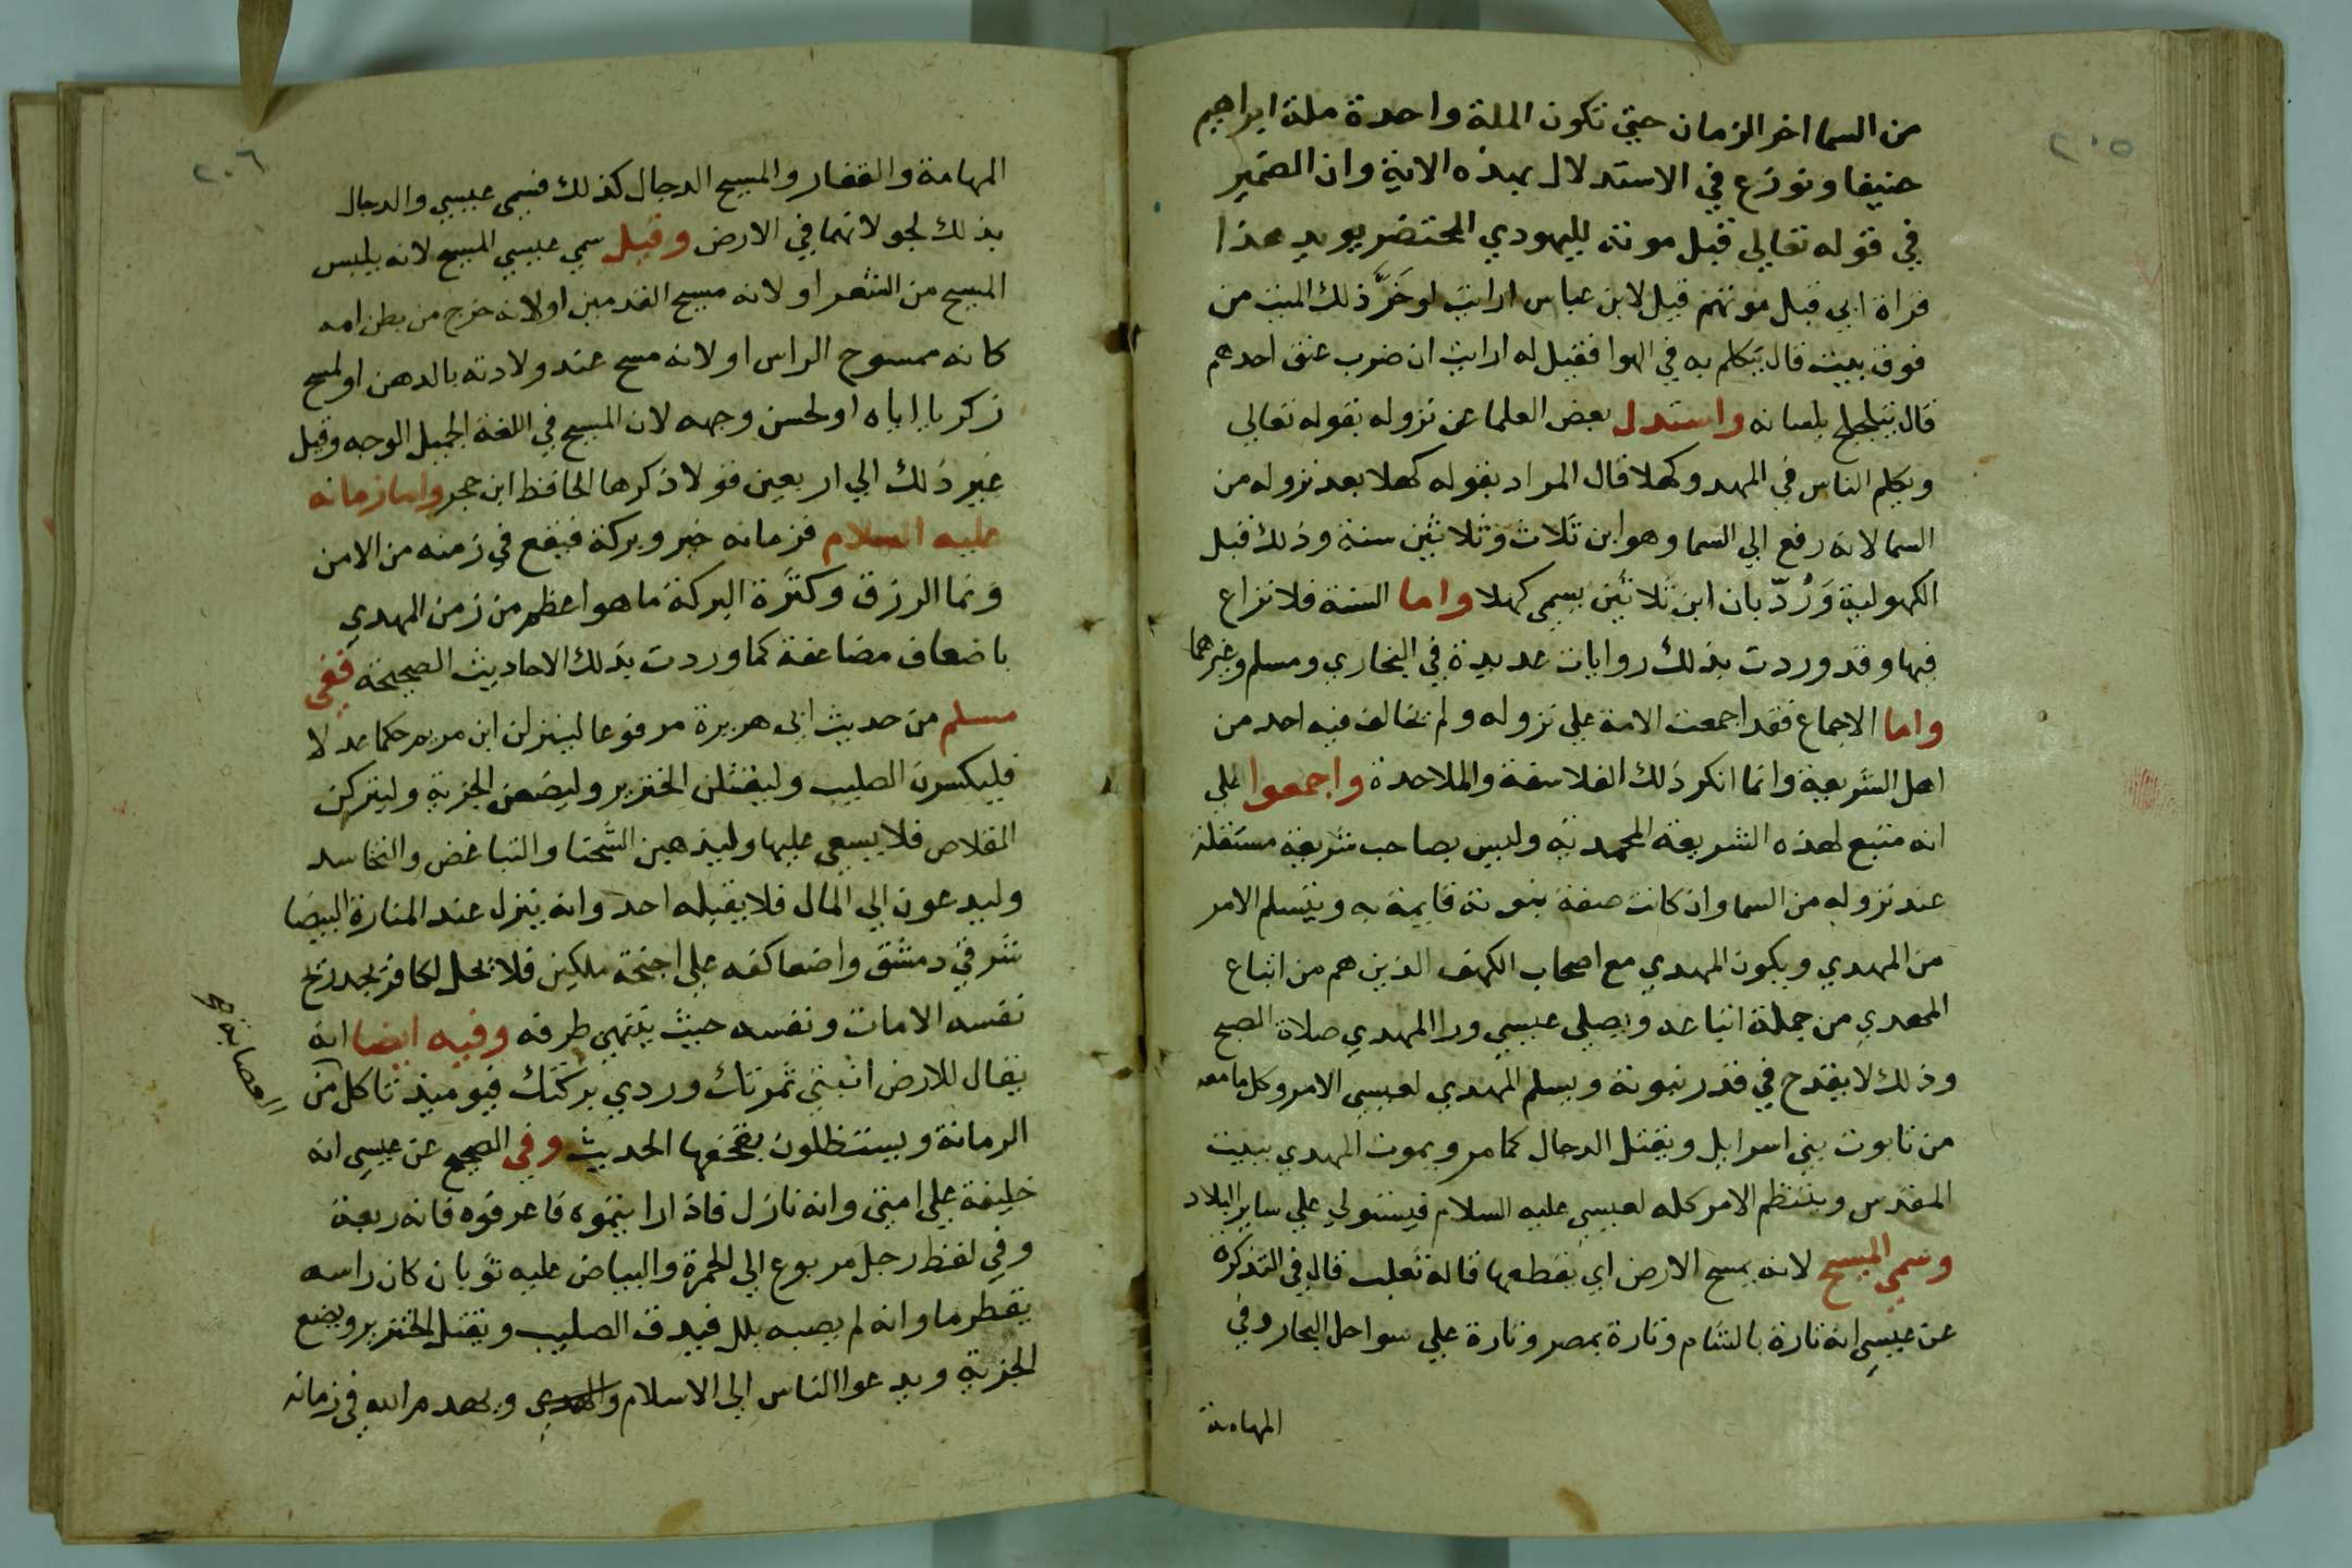 ٢٠٥
من السما اخر الزمان حتي تكون الملة واحدة ملة ابراهيم
حنيفا ونوزع في الاستدلال بهذه الاية وان الضمير
في قوله تعالي قبل موته لليهودي المحتضر يويد هذا
قراة ابي قبل موتهم قيل لابن عباس ارايت لو خَرَّ ذلك الميت من
فوق بيت قال يتكلم به في الهوا فقيل له ارايت ان ضرب عنق احدهم
قال يتلجلج بلسانه واستدل بعض العلما عن نزوله بقوله تعالي
ويكلم الناس في المهد وكهلا قال المراد بقوله كهلا بعد نزوله من
السما لانه رفع الي السما وهو ابن ثلاث وثلاثين سنة وذلك قبل
الكهولية وَرُدّ بان ابن ثلاثين يسمي كهلا واما السنة فلا نزاع
فيها وقد وردت بذلك روايات عديدة في البخاري ومسلم وغيرهما
واما الاجماع فقد اجمعت الامة علي نزوله ولم يخالف فيه احد من
اهل الشريعة وانما انكر ذلك الفلاسفة والملاحدة واجمعوا علي
انه متبع لهذه الشريعة المحمدية وليس بصاحب شريعة مستقلة
عند نزوله من السما وان كانت صفة نبوته قايمة به ويتسلم الامر
من المهدي ويكون المهدي مع اصحاب الكهف الذين هم من اتباع
المهدي من جملة اتباعه ويصلي عيسي ورا المهدي صلاة الصبح
وذلك لا يقدح في قدر نبوته ويسلم المهدي لعيسي الامر وكل ما معه
من تابوت بني اسرايل ويقتل الدجال كما مر ويموت المهدي ببيت
المقدس وينتظم الامر كله لعيسي عليه السلام فيستولي علي ساير البلاد
وسمي المسيح لانه يمسح الارض اي يقطعها قاله ثعلب قال في التذكرة
عن عيسي انه تارة بالشام وتارة بمصر وتارة علي سواحل البحار وفي
المهامة
٢٠٦
المهامة والقفار والمسيح الدجال كذلك فسمي عيسي والدجال
بذلك لجولانهما في الارض وقيل سمي عيسي المسيح لانه يلبس
المسيح من الشعر او لانه مسيح القدمين او لانه خرج من بطن امه
كانه ممسوح الراس او لانه مسح عند ولادته بالدهن او لمسح
زكريا اياه او لحسن وجهه لان المسيح في اللغة الجميل الوجه وقيل
غير ذلك الي اربعين قولا ذكرها الحافظ ابن حجر واما زمانه
عليه السلام فزمانه خير وبركة فيقع في زمنه من الامن
ونما الرزق وكثرة البركة ما هو اعظم من زمن المهدي
باضعاف مضاعفة كما وردت بذلك الاحاديث الصحيحة ففي
مسلم من حديث ابي هريرة مرفوعا لينزلن ابن مريم حكما عدلا
فليكسرن الصليب وليقتلن الخنزير وليضعن الجزية وليتركن
القلاص فلا يسعي عليها وليذهبن الشحنا والتباغض والتحاسد
وليدعون الي المال فلا يقبله احد وانه ينزل عند المنارة البيضا
شرقي دمشق واضعا كفه علي اجنحة ملكين فلا يحل لكافر يجد ريح
نفسه الا مات ونفسه حيث ينتهي طرفه وفيه ايضا انه
يقال للارض انبتي ثمرتك وردي بركتك فيوميذ تاكل من
العصابة
الرمانة ويستظلون بقحفها الحديث وفي الصحيح عن عيسي انه
خليفة علي امتي وانه نازل فاذا رايتموه فاعرفوه فانه ربعة
وفي لفظ رجل مربوع الي الحمرة والبياض عليه ثوبان كان راسه
يقطر ما وانه لم يصبه بلل فيدق الصليب ويقتل الخنزير ويضع
الجزية ويدعوا الناس الي الاسلام ويهدم الله في زمانه